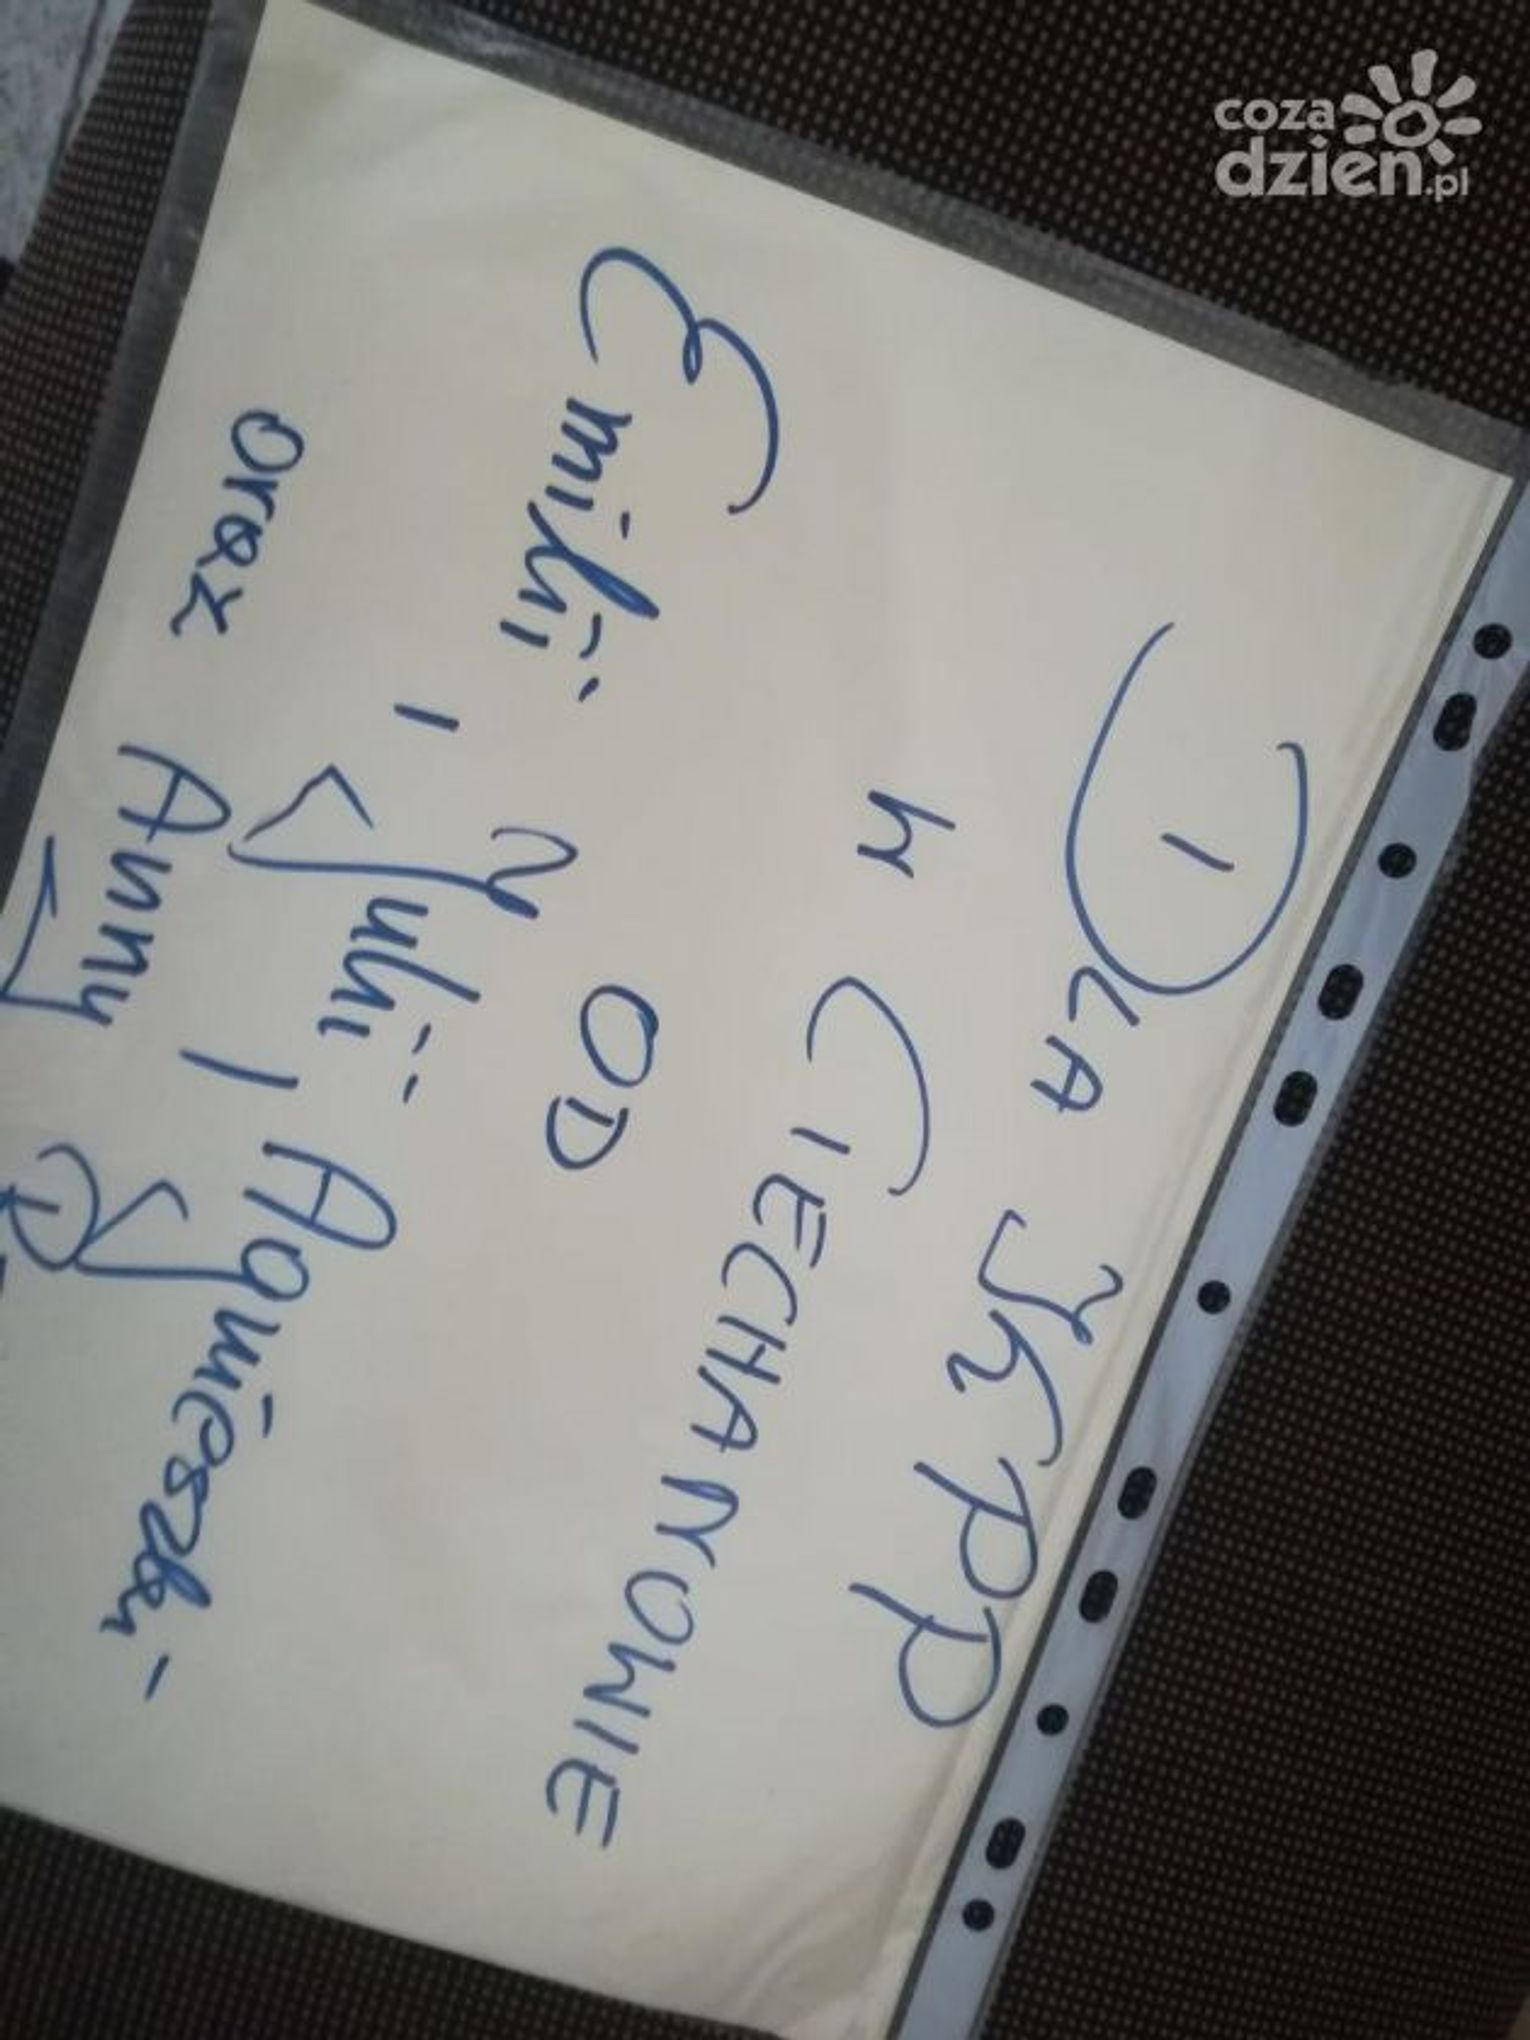 coza
dzien.pl
DLA KPP
W CIECHANOWIE
OD
Emilii i Julii i Agnieszki
oraz Anny